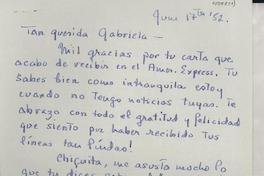 June 17th '52.
Tan querida Gabriela —
Mil gracias por tu carta que
acabo de recibir en el Amer. Express. Tu
sabes bien como intranquila estoy
cuando no tengo noticias tuyas. Te
abrazo con todo el gratitud y felicidad
que siento por haber recibido tus
líneas tan lindas!
Chiquita, me asusta mucho lo
que tu dices